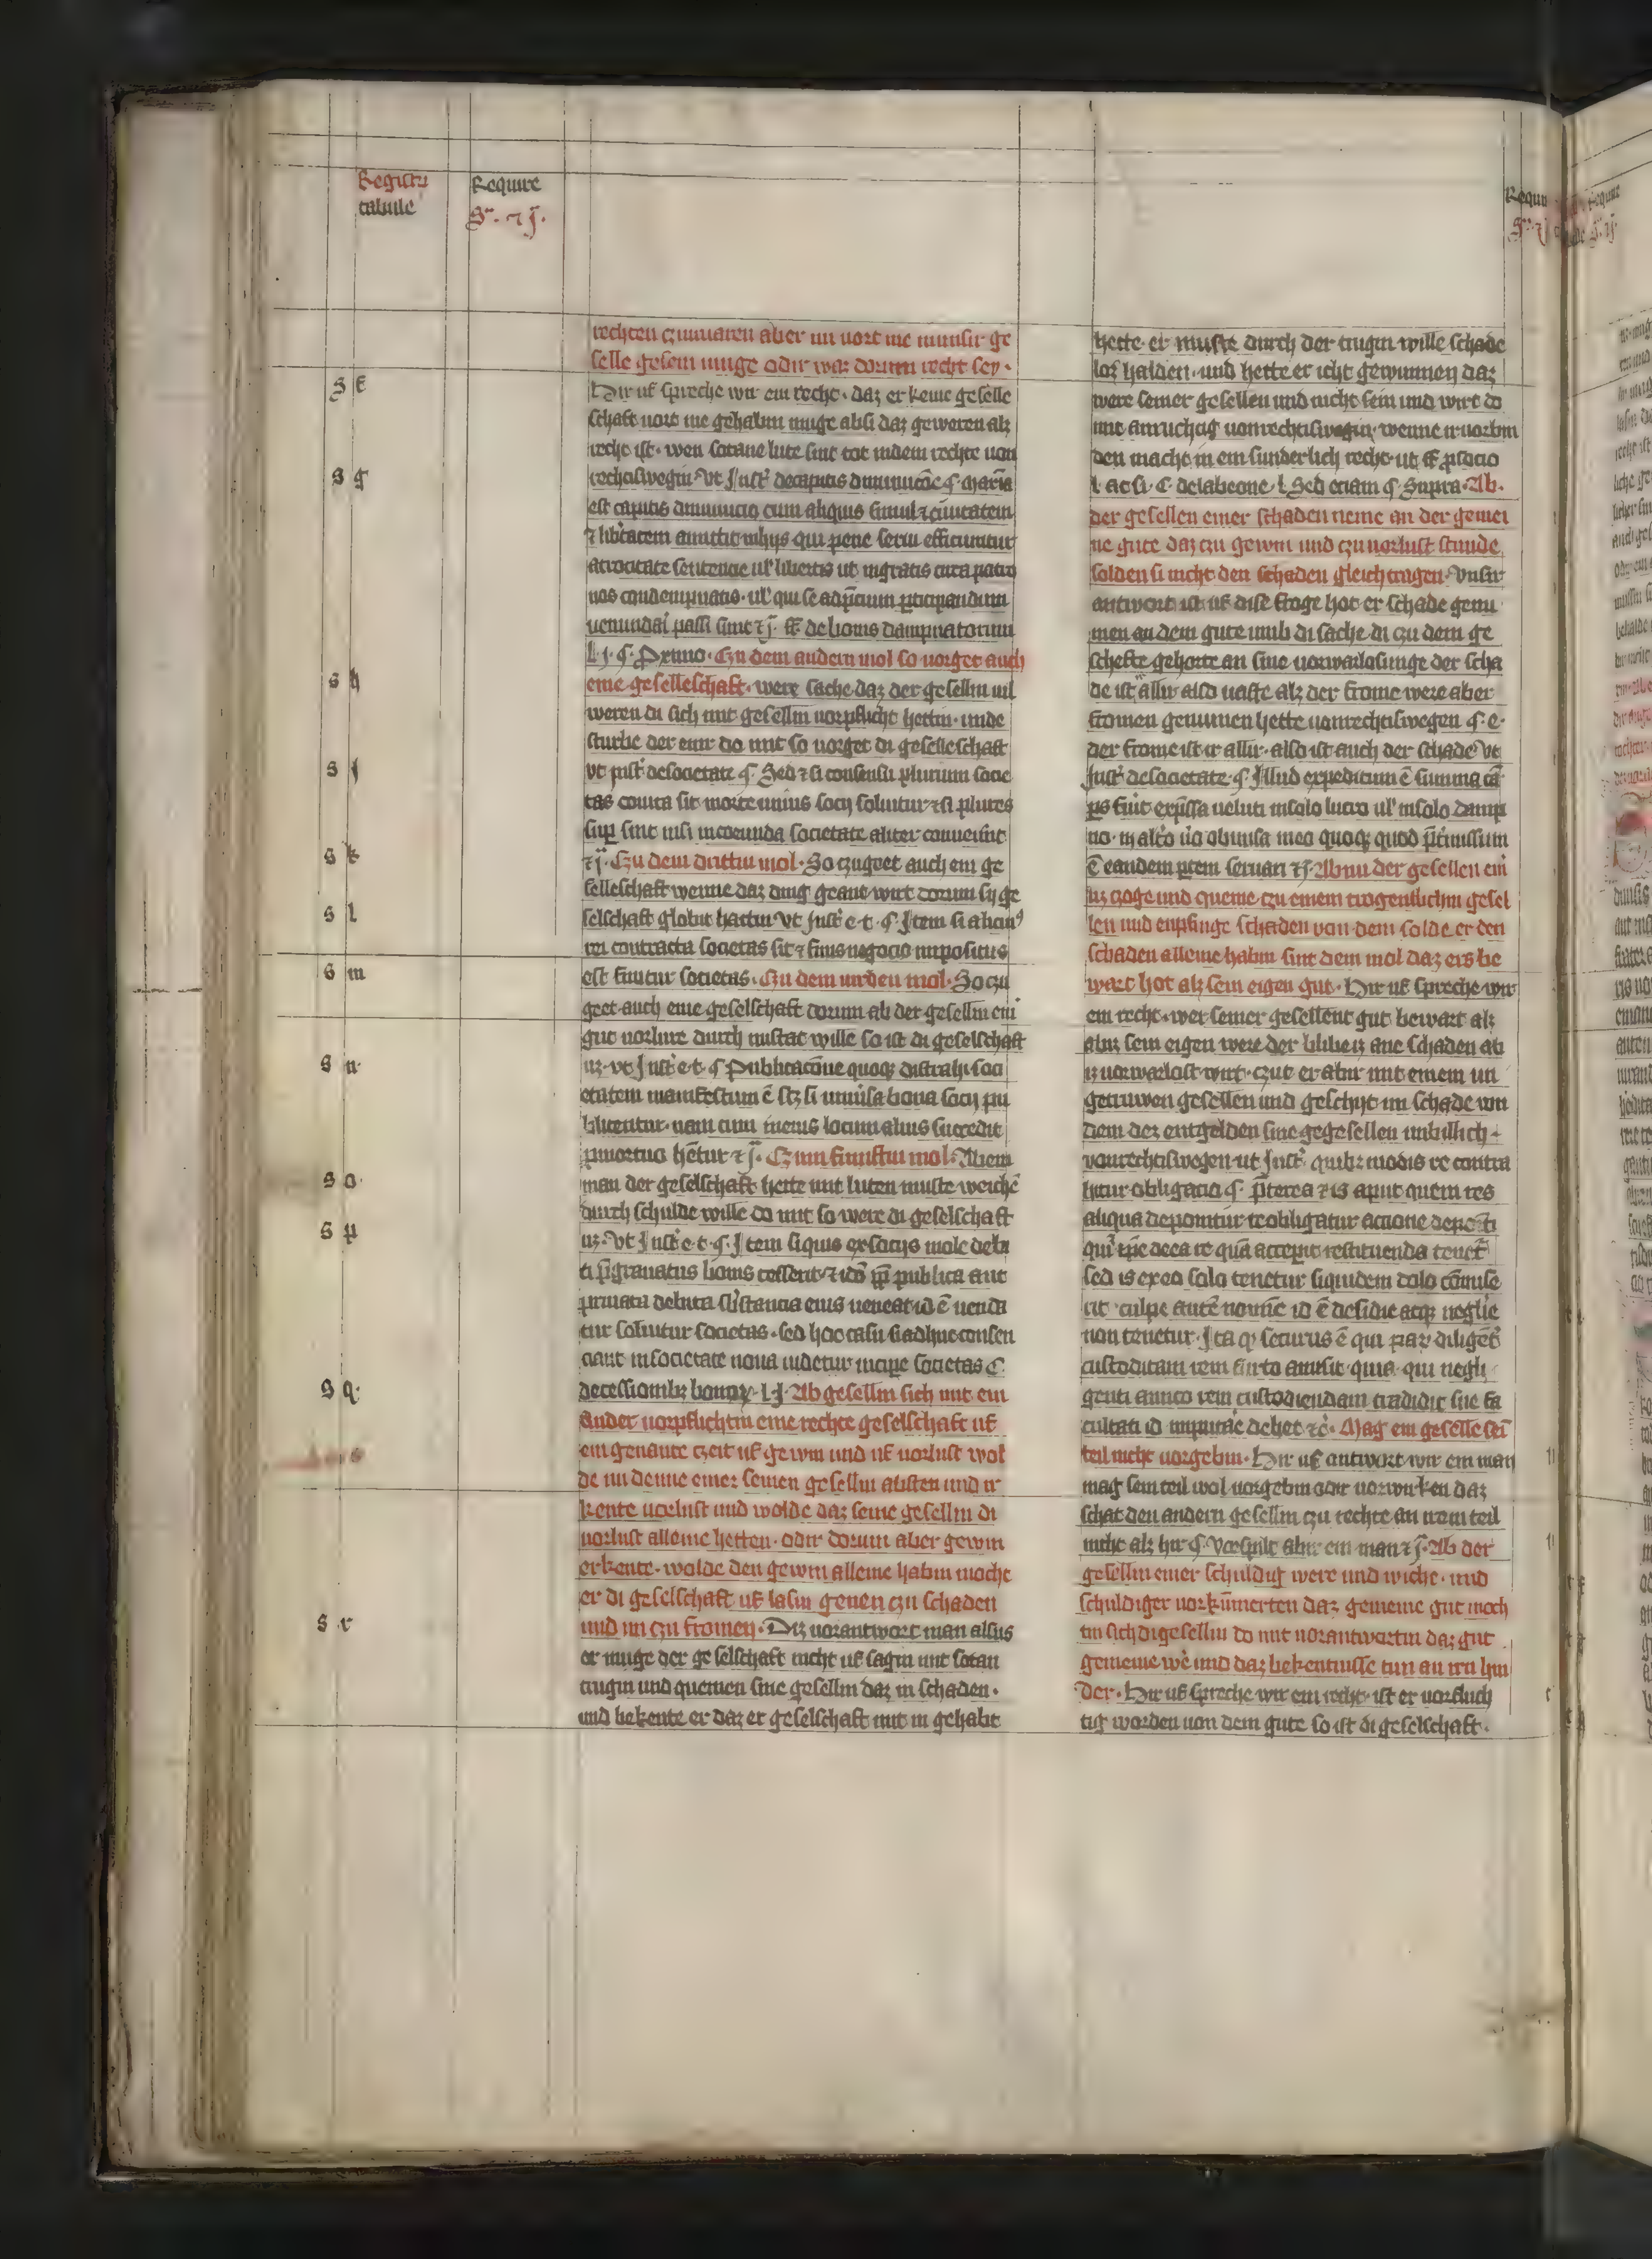 Registru
tabule
Require
Sª. ⁊ j̄.
rechten czuuaren aber im uort me minsir ge
selle gesein muge odir waz dorum recht sey.
S f
Hir uf spreche wir ein recht. daz er keine geselle
schaft uort me gehabin muge also daz geweren alz
recht ist. wen sotane lute sint tot in dem rechte uon
S g
rechtiswegin Vt Inst' de capitis diminucōe ȼ. maxīa
est capitis diminucio cum aliquis simul ⁊ ciuitatem
⁊ lib'tatem amittit in hys qui pene serui efficiuntur
atrocitate sentencie ul' libertis ut ingratis circa patro
nos condempnatis. ul' qui se ad p̄cium p̄ticipandum
uenundai passi sint ⁊ j̄. ff' de bonis dampnatorum
l. j. ȼ. Primo. Czu dem andern mol so uorget auch
S h
eine geselleschaft. were sache daz der gesellin uil
weren di sich mit gesellin uorpflicht hettin. unde
sturbe der einir do mit so uorget di geselleschaft
S i
vt inst' de societate ȼ. Sed ⁊ si consensu plurium socie
tas coita sit morte unius socij soluitur ⁊ si plures
sup̄ sint nisi in coeunda societate aliter conuenint
S k
⁊ j̄. Czu dem drittin mol. So czuget auch ein ge
selleschaft wenne daz ding geant wirt dorum sy ge
S l
selschaft globit hattin Vt Inst' e. t. ȼ. Item si alicui9
rei contracta societas sit ⁊ finis negocio impositus
S m
est finitur societas. Czu dem uirden mol. So czu
geet auch eine geselschaft dorum ab der gesellin ein
gut uorlure durch missetat wille so ist di geselschaft
S n
uz. vt Inst' e. t. ȼ Publicacōne quoqz distrahi soci
etatem manifestum ē scz si uniu'sa bona socij pu
blicentur. nam cum in eius locum alius succedit
p̄ mortuo hētur ⁊ j̄. Czum funftin mol. Ab ein
S o
man der geselschaft hette mit luten muste weichē
durch schulde wille do mit so were di geselschaft
S p
uz. Vt Inst' e. t. ȼ. Item siquis ex socijs mole debi
ti p̄granatus bonis cesserit ⁊ idō p̄p̄ publica aut
priuata debita sb'stancia eius ueneat id ē uenda
tur soluitur societas. sed hoc casu si adhuc consen
ciant in societate noua uidetur incipe societas C.
S q
de cessionibz bonoꝝ. l. j. Ab gesellin sich mit ein
ander uorpflichtin eine rechte geselschaft uf
ein genante czeit uf gewin und uf uorlust wol
de im denne einer seinen gesellin absten und ir
kente uorlust und wolde daz seine gesellin di
uorlust alleine hetten. odir dorum aber gewin
erkente. wolde den gewin alleine habin moche
er di geselschaft uf lasin genen czu schaden
S r
und im czu fromen. Diz uorantwort man alsus
er muge der geselschaft nicht uf sagin mit sotan
trugin und quemen sine gesellin daz in schaden.
und bekente er daz er geselschaft mit in gehabt
hette. er muste durch der trugin wille schade
los halden. und hette er icht gewunnen daz
were seiner gesellen und nicht sein und wirt do
mit anruchtig uonrechtiswegin. wenne ir uorbin
den macht in ein sunderlich recht. ut ff' p̄ socio
l. ac si. C. de labeone. l. Sed eciam ȼ. Supra. Ab.
der gesellen einer schaden neme an der gemei
ne gute daz czu gewin und czu uorlust stunde
solden si nicht den schaden gleich tragen. Vnsir
antwort ist uf dise froge hot er schade genu
men an dem gute umb di sache di czu dem ge
schefte gehorte an sine uorwarlosunge der scha
de ist allir also uaste alz der frome were aber
fromen genumen hette uonrechtiswegen ȼ. e.
der frome ist ir allir. also ist auch der schade Vt
Inst' de societate. ȼ. Illud expeditum ē si in una cā
ps fu'it exp̄ssa ueluti in solo lucro ul' in solo damp
no. in alt'o u'o obmissa in eo quoqz quod p̄termissum
ē eandem p̄tem seruari ⁊ j̄. Abnu der gesellen ein
uz czoge und queme czu einem trogentlichin gesel
len und enpfinge schaden von dem solde er den
schaden alleine habin sint dem mol daz ers be
wart hot alz sein eigen gut. Hir uf spreche wir
ein recht. wer seiner gesellent gut bewart alz
abiz sein eigen were der blibet iz ane schaden ab
iz uorwarlost wirt. czut er abir mit einem un
getruwen gesellen und geschyt im schade von
dem dez entgelden sine gegesellen unbillich.
vonrechtiswegen. ut Inst'. quibz modis re contra
hitur obligacio ȼ. p̄terea ⁊ is aput quem res
aliqua deponitur re obligatur actione depo'ti
qui' ip̄e de ea re quā accepit restituenda tenet'
sed is ex eo solo tenetur siquidem dolo cōmise
rit culpe autē nomīe id ē desidie atqz neglie
non tenetur. Ita qz securus ē qui paꝝ diligēt'
custoditam rem furto amisit. quia. qui negli
genti amico rem custodiendam tradidit sue fa
cultati id imputare debet ⁊c'. Mag ein geselle sei
teil nicht uorgebin. Hir uf antwort wir ein man
mag sein teil wol uorgebin odir uorwirken daz
schat den andern gesellin czu rechte an irem teil
nicht alz hir ȼ. Vorspilt abir ein man ⁊ j̄. Ab der
gesellin einer schuldig were und wiche. und
schuldiger uorkūmerten daz gemeine gut moch
tin sich di gesellin do mit uorantwortin daz gut
gemeine wē und daz bekentnisse tun an iren hin
der. Hir uf spreche wir ein recht. ist er uorfluch
tig worden uon dem gute so ist di geselschaft.